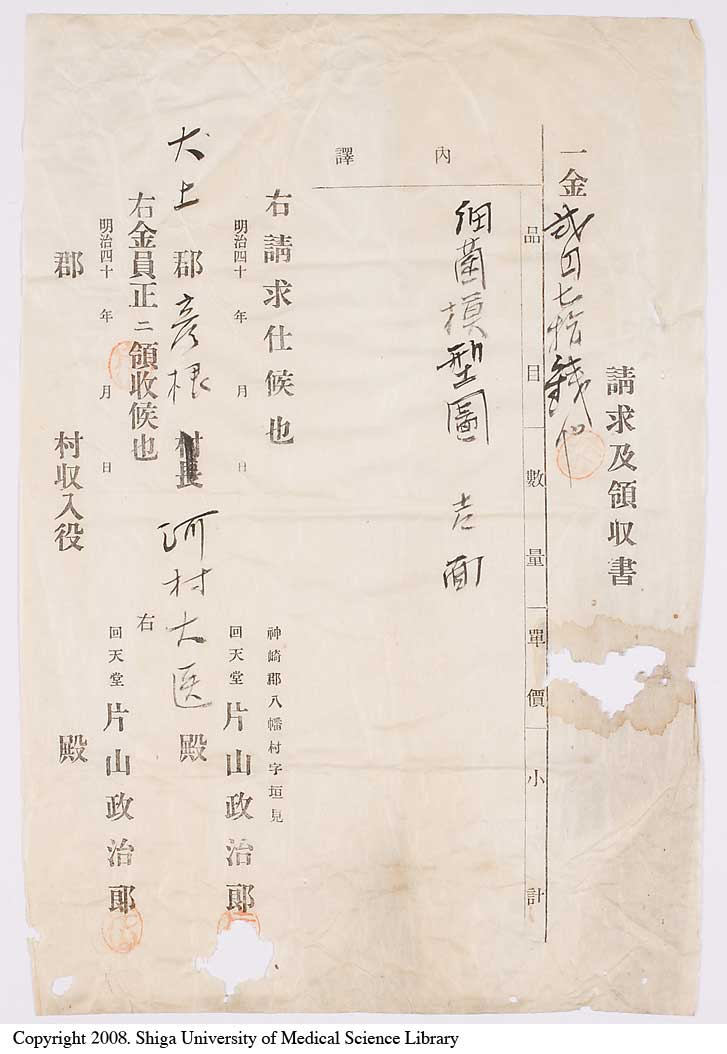 請求及領収書
一金貳円七拾錢也
品目 數量 單價 小計
內譯
細菌模型圖 壱面
右請求仕候也
明治四十年 月 日
神崎郡八幡村字垣見
回天堂 片山政治郎
犬上郡彦根村長 河村大医殿
右金員正ニ領收候也
明治四十年 月 日
右
回天堂 片山政治郎
郡 村収入役 殿
Copyright 2008. Shiga University of Medical Science Library